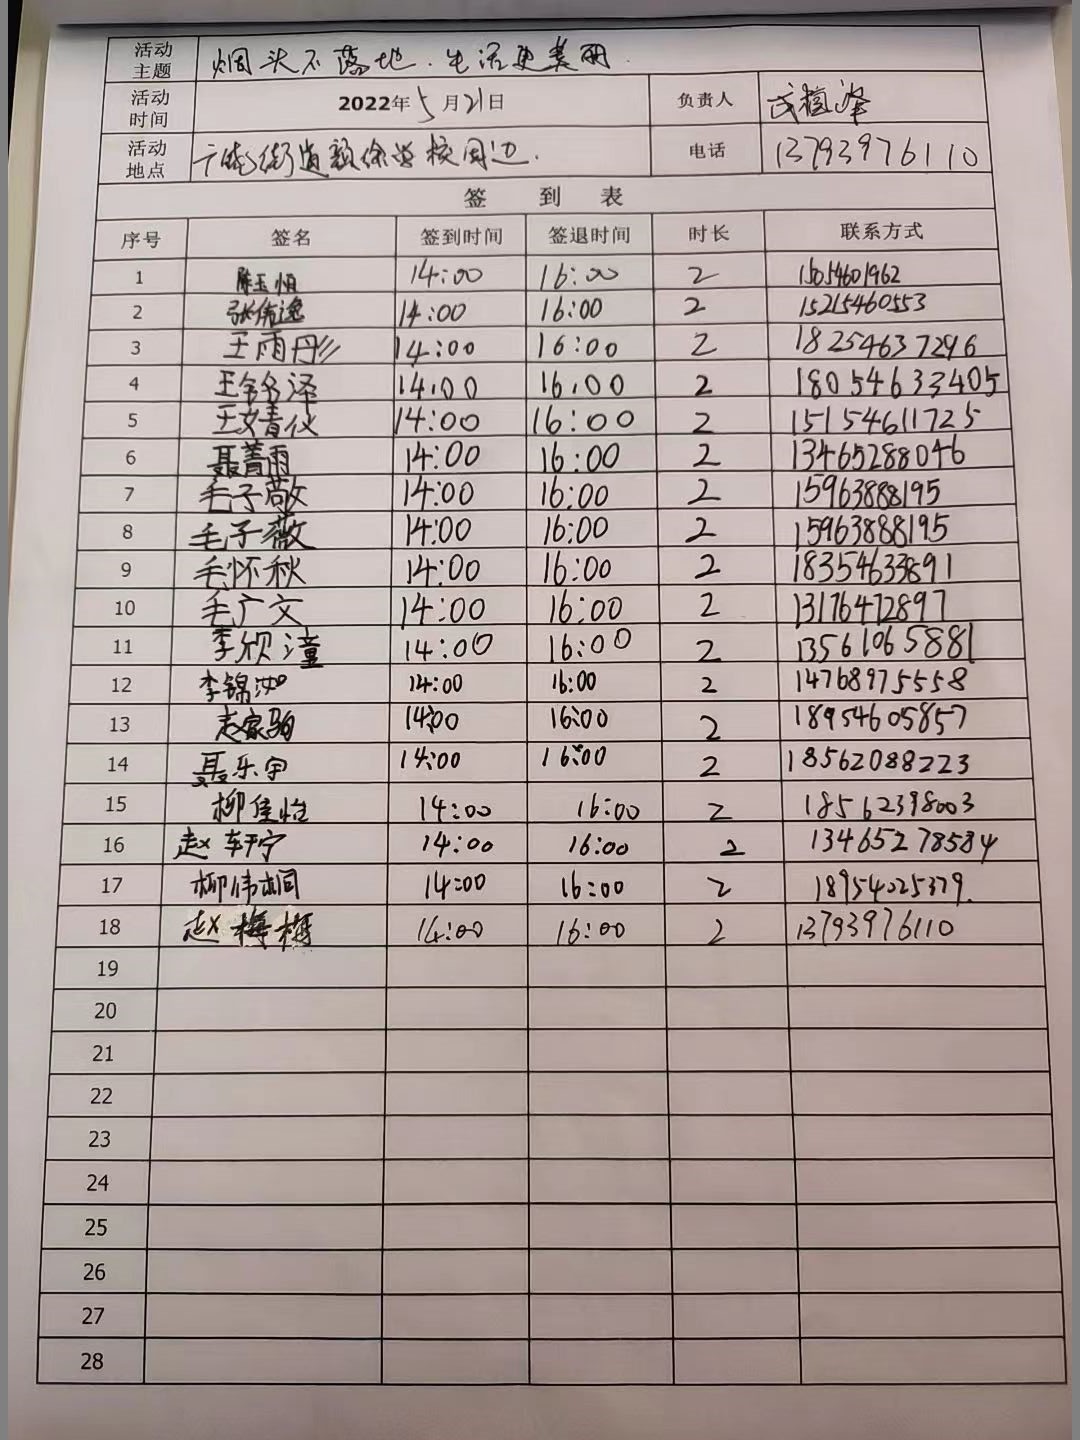 活动主题 烟头不落地.生活更美丽.
活动时间 2022年5月21日 负责人 武植峰
活动地点 广饶街道颜徐学校周边. 电话 13793976110
签 到 表
序号 签名 签到时间 签退时间 时长 联系方式
1 14:00 16:00 2 15054601962
2 张倚逸 14:00 16:00 2 15215460553
3 王雨彤 14:00 16:00 2 18254637296
4 王铭泽 14:00 16:00 2 18054633405
5 王婧仪 14:00 16:00 2 15154611725
6 聂菁雨 14:00 16:00 2 13465288046
7 毛子敬 14:00 16:00 2 15963888195
8 毛子薇 14:00 16:00 2 15963888195
9 毛怀秋 14:00 16:00 2 18354633891
10 毛广文 14:00 16:00 2 13176472897
11 李欣潼 14:00 16:00 2 13561065881
12 李锦 14:00 16:00 2 14768975558
13 赵家驹 14:00 16:00 2 18954605857
14 聂乐宇 14:00 16:00 2 18562088223
15 柳佳怡 14:00 16:00 2 18562398003
16 赵轩宁 14:00 16:00 2 13465278584
17 柳伟桐 14:00 16:00 2 18954025379.
18 赵梅梅 14:00 16:00 2 13793976110
19
20
21
22
23
24
25
26
27
28